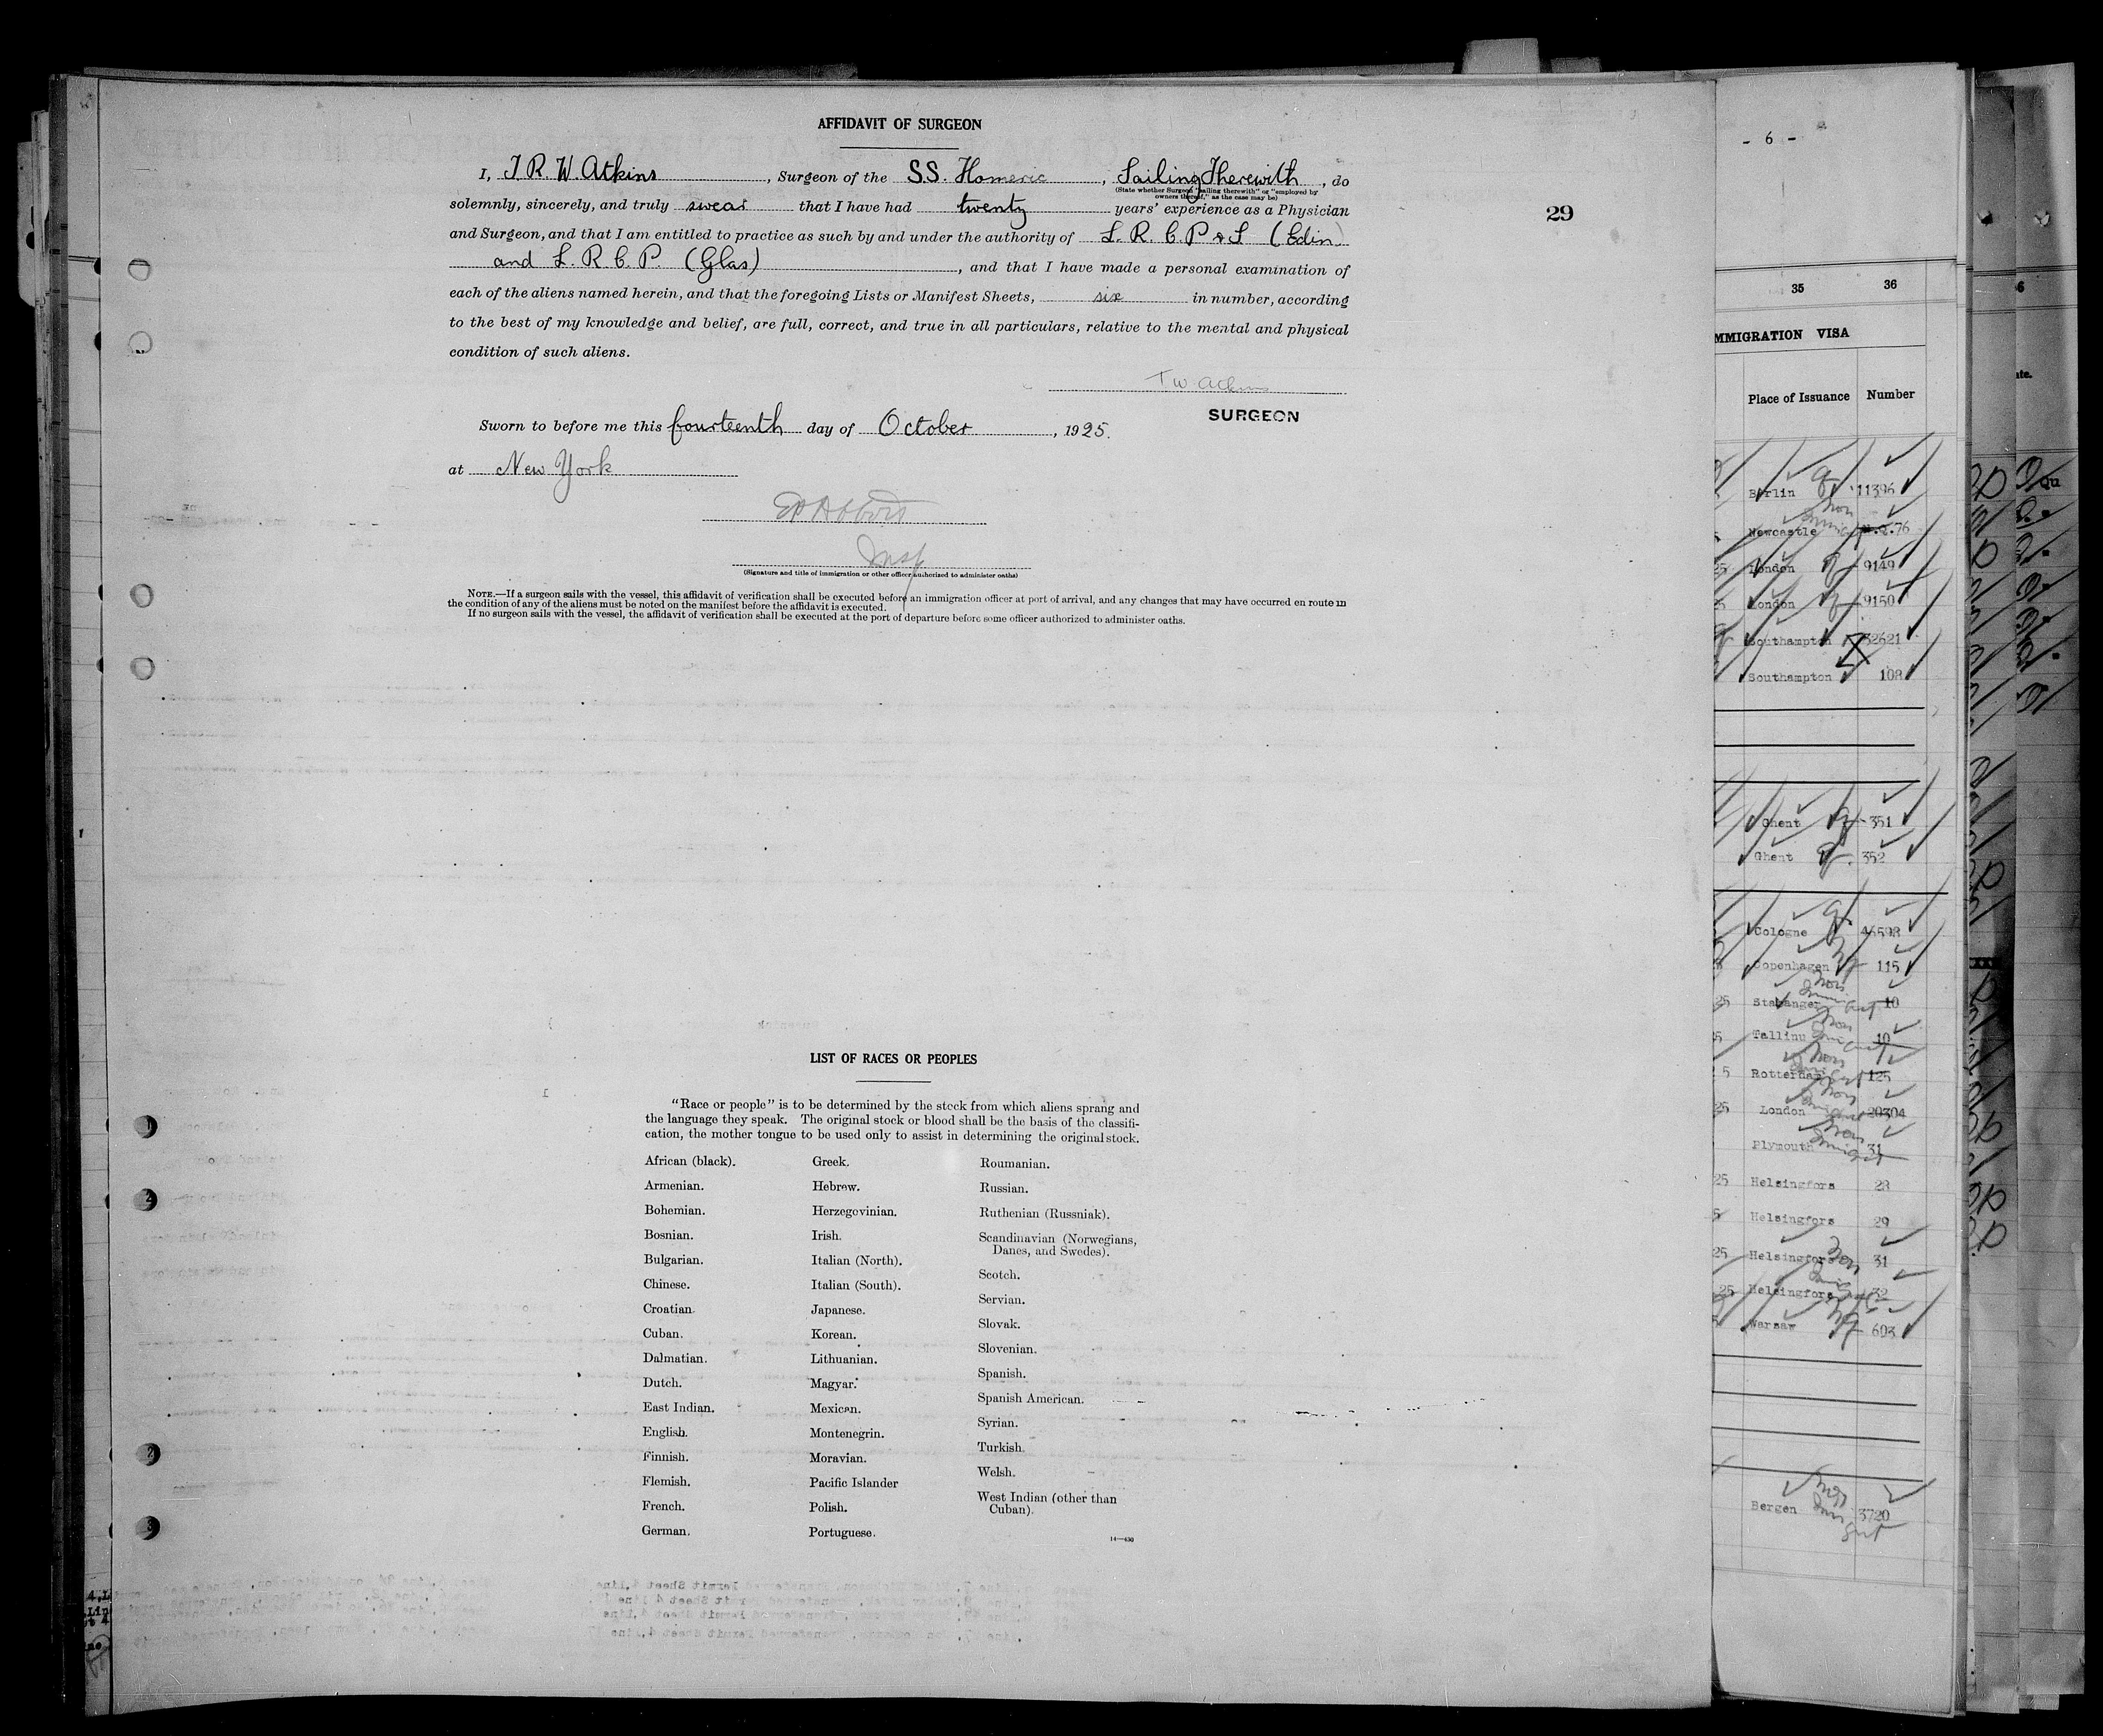 AFFIDAVIT OF SURGEON
I, T. R. W. Atkins, Surgeon of the S.S. Homeric, Sailing Therewith, do
(State whether Surgeon "sailing therewith" or "employed by
owners thereof," as the case may be)
solemnly, sincerely, and truly swear that I have had twenty years' experience as a Physician
and Surgeon, and that I am entitled to practice as such by and under the authority of L. R. C. P & S (Edin)
and L. R. C. P. (Glas), and that I have made a personal examination of
each of the aliens named herein, and that the foregoing Lists or Manifest Sheets, six in number, according
to the best of my knowledge and belief, are full, correct, and true in all particulars, relative to the mental and physical
condition of such aliens.
SURGEON
Sworn to before me this fourteenth day of October, 1925.
at New York
Insp
(Signature and title of immigration or other officer authorized to administer oaths)
NOTE.—If a surgeon sails with the vessel, this affidavit of verification shall be executed before an immigration officer at port of arrival, and any changes that may have occurred en route in
the condition of any of the aliens must be noted on the manifest before the affidavit is executed.
If no surgeon sails with the vessel, the affidavit of verification shall be executed at the port of departure before some officer authorized to administer oaths.
29
LIST OF RACES OR PEOPLES
"Race or people" is to be determined by the stock from which aliens sprang and
the language they speak. The original stock or blood shall be the basis of the classifi-
cation, the mother tongue to be used only to assist in determining the original stock.
African (black).
Armenian.
Bohemian.
Bosnian.
Bulgarian.
Chinese.
Croatian.
Cuban.
Dalmatian.
Dutch.
East Indian.
English.
Finnish.
Flemish.
French.
German.
Greek.
Hebrew.
Herzegovinian.
Irish.
Italian (North).
Italian (South).
Japanese.
Korean.
Lithuanian.
Magyar.
Mexican.
Montenegrin.
Moravian.
Pacific Islander
Polish.
Portuguese.
Roumanian.
Russian.
Ruthenian (Russniak).
Scandinavian (Norwegians,
Danes, and Swedes).
Scotch.
Servian.
Slovak.
Slovenian.
Spanish.
Spanish American.
Syrian.
Turkish.
Welsh.
West Indian (other than
Cuban).
14—430
- 6 -
35 36
MMIGRATION VISA
Place of Issuance Number
Berlin 11396
Newcastle 76
London 9149
London 9150
Southampton 32621
Southampton 108
Ghent 351
Ghent 352
Cologne 46598
Copenhagen 115
Stabanger 10
Tallinu 10
Rotterdam 125
London 20304
Plymouth 31
Helsingfors 28
Helsingfors 29
Helsingfors 31
Helsingfors 32
Warsaw 603
Bergen 3720